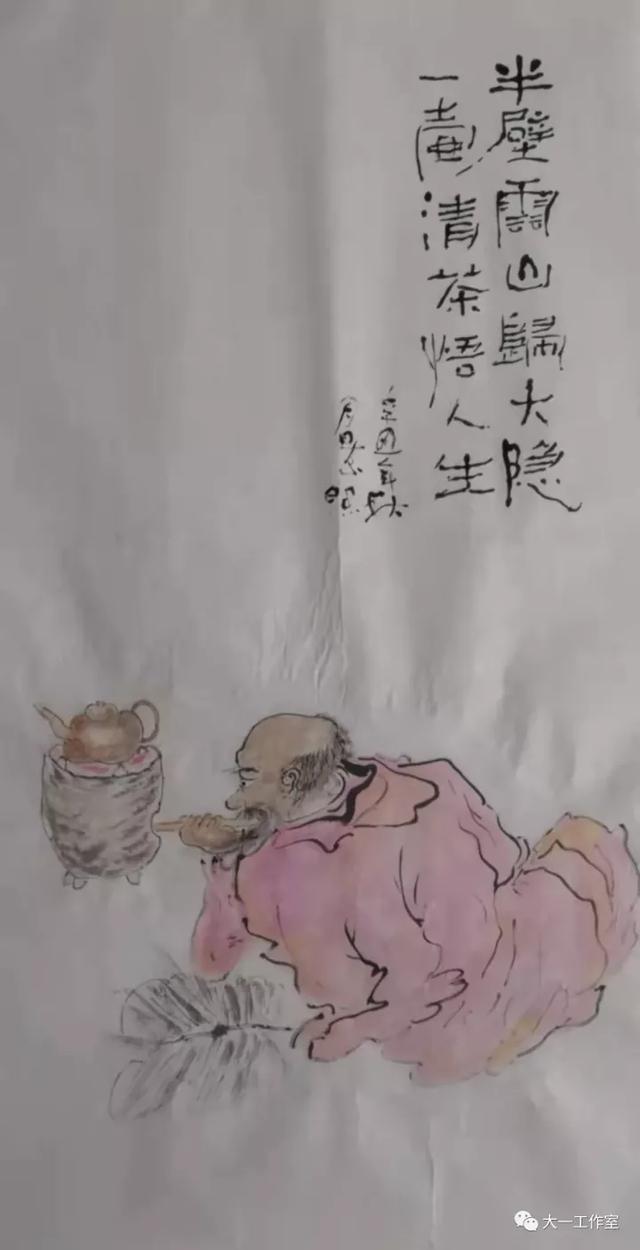 半壁雲山歸大隐
一壶清茶悟人生
辛丑年秋
大一工作室